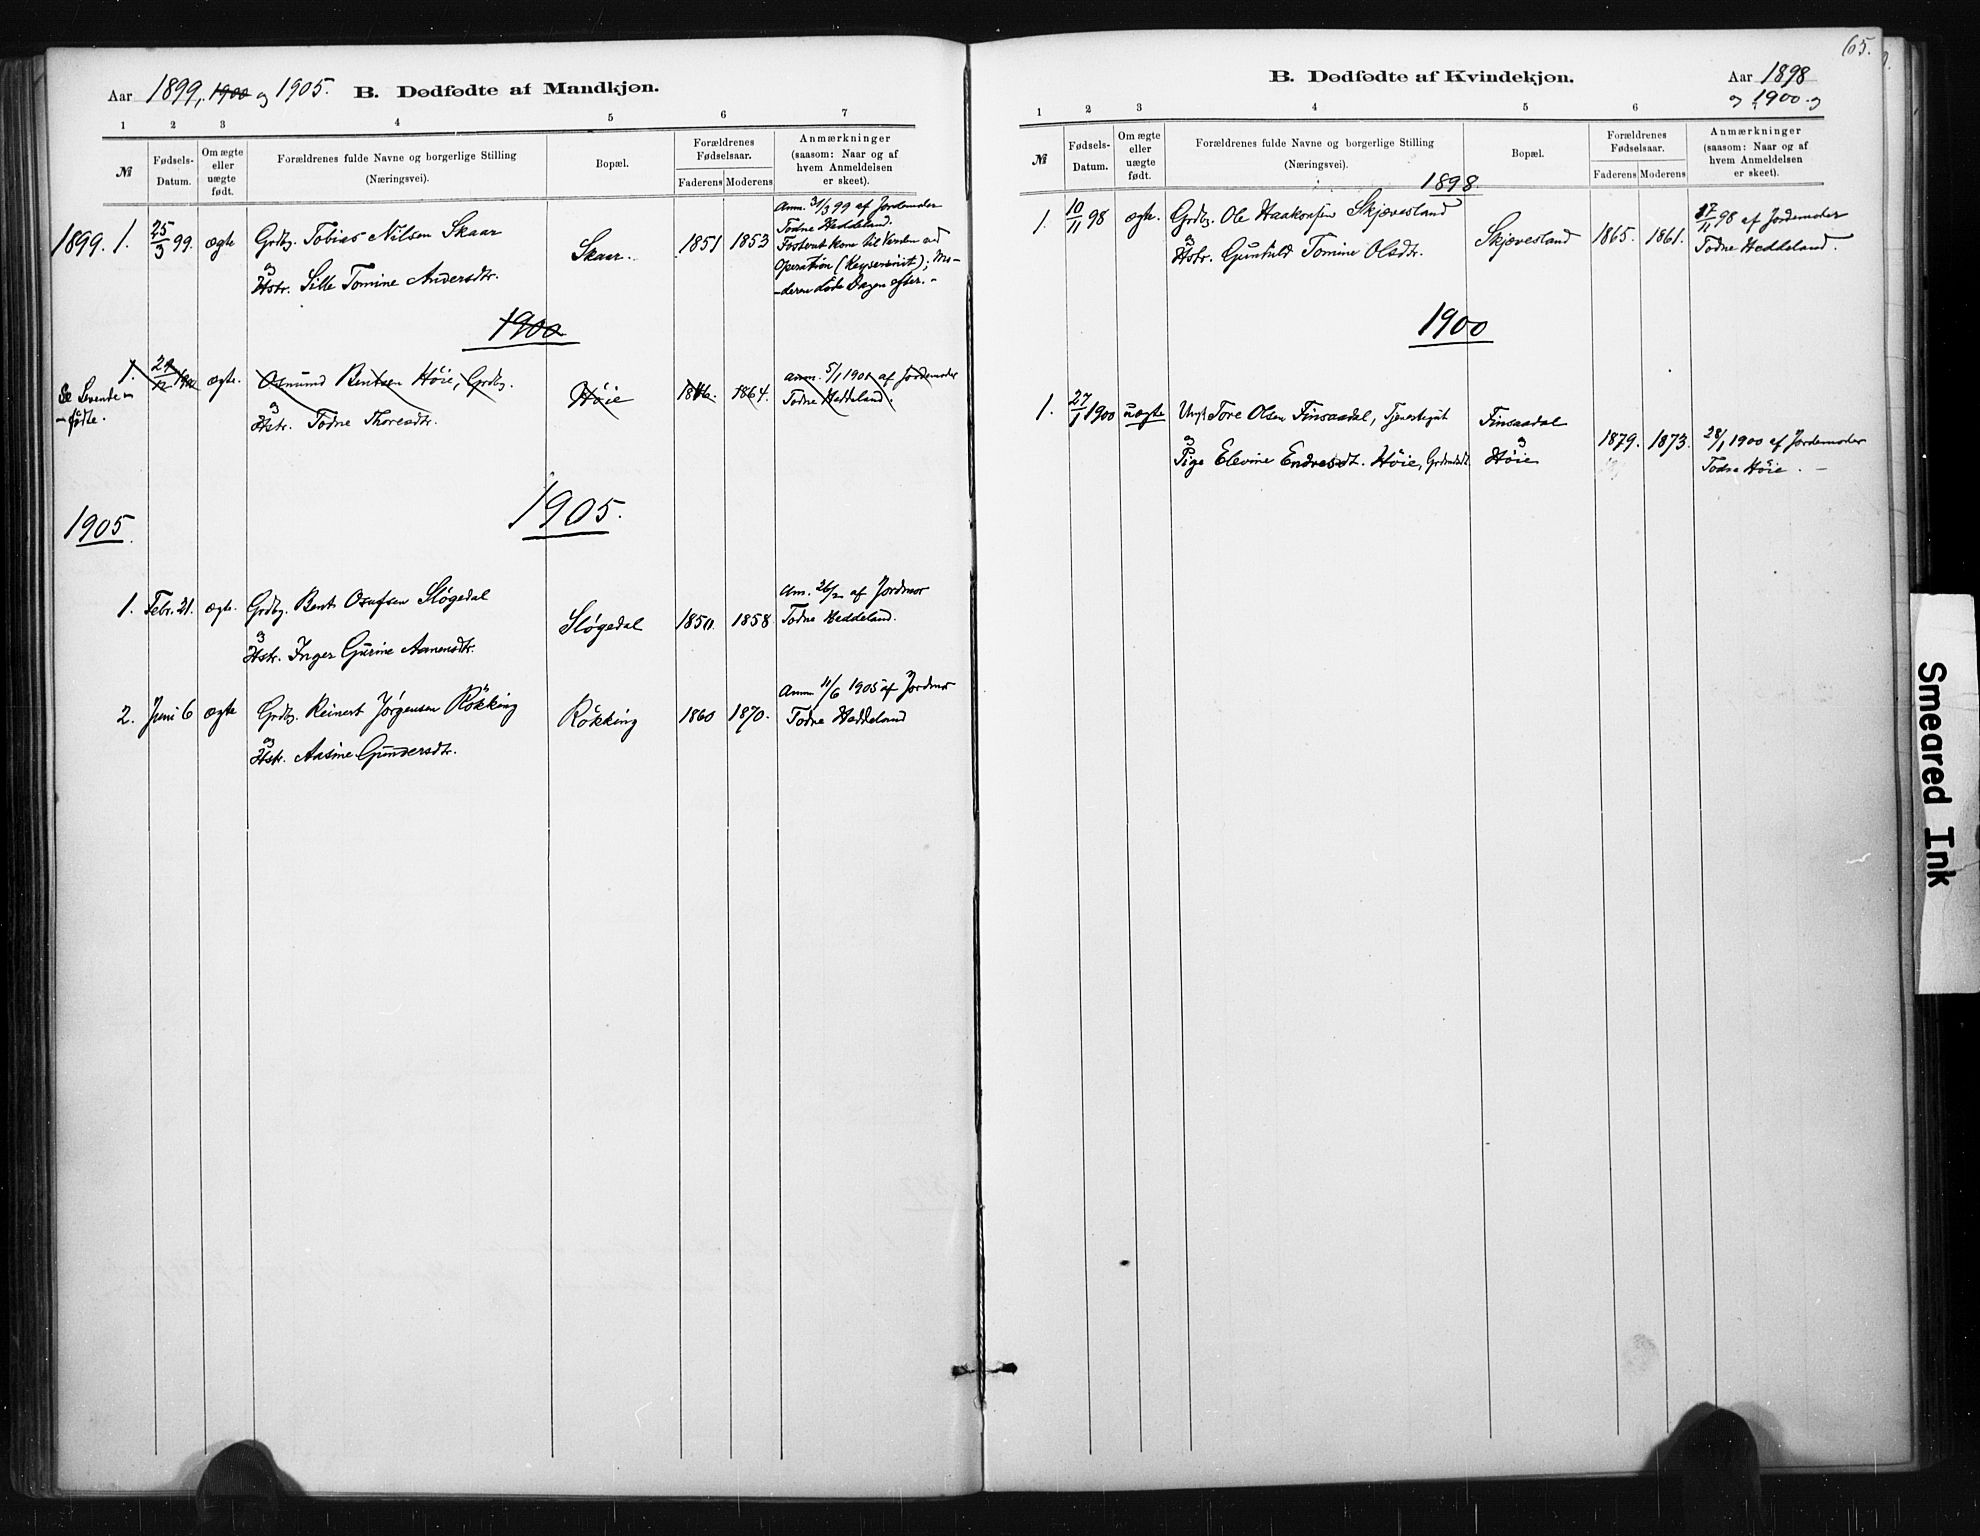 Aar 1899, 1900 og 1905. B. Dødfødte af Mandkjøn.
1 2 3 4 5 6 7
№ Fødsels-Datum. Om ægte eller uægte født. Forældrenes fulde Navne og borgerlige Stilling (Næringsvei). Bopæl. Forældrenes Fødselsaar. Faderens Moderens Anmærkninger (saasom: Naar og af hvem Anmeldelsen er skeet).
1899. 1. 25/3 99. ægte Grdbg. Tobias Nilsen Skaar
og
Hstr. Sille Tomine Andersdtr.
Skaar. 1851 1853
Anm. 31/3 99 af Jordemoder
Todne Heddeland.
Fosteret kom til Verden ved
Operation (Keysersnit); Mo-
-deren døde Dagen efter. -
1900
1. ægte. Osmund Bentsen Høie, Grdbg.
og
Hstr. Todne Thoresdtr.
Høie 1864.
Anm. 5/1 1901 af Jordemoder
Todne Heddeland.
Se Levende
-fødte.
1905. 1905.
1. Febr. 21. ægte. Grdbg. Bent Osufsen Sløgedal
og
Hstr. Inger Gurine Aanensdtr.
Sløgedal 1850. 1858
Anm. 26/2 af Jordmor
Todne Heddeland.
2. Juni 6 ægte Grdbg. Reinert Jørgensen Røkking
og
Hstr. Aasine Gundersdtr.
Røkking 1860 1870.
Anm. 11/6 1905 af Jordmor
Todne Heddeland
65.
B. Dødfødte af Kvindekjøn. Aar 1898
og 1900
1 2 3 4 5 6 7
№ Fødsels-Datum. Om ægte eller uægte født. Forældrenes fulde Navne og borgerlige Stilling (Næringsvei). Bopæl. Forældrenes Fødselsaar. Faderens Moderens Anmærkninger (saasom: Naar og af hvem Anmeldelsen er skeet).
1898.
1. 10/11 98 ægte. Grdbg. Ole Haakonsen Skjævesland
og
Hstr. Gunhild Tomine Olsdtr.
Skjævesland 1865. 1861.
17/11 98 af Jordemoder
Todne Heddeland.
1900
1. 27/1 1900 uægte Ungk. Tore Olsen Finsaadal, Tjenestegut
og
Pige Elevine Endresdt. Høie, Grdmdtr.
Finsaadal
og
Høie
1879. 1873.
28/1 1900 af Jordemoder
Todne Høie. -
Smeared Ink